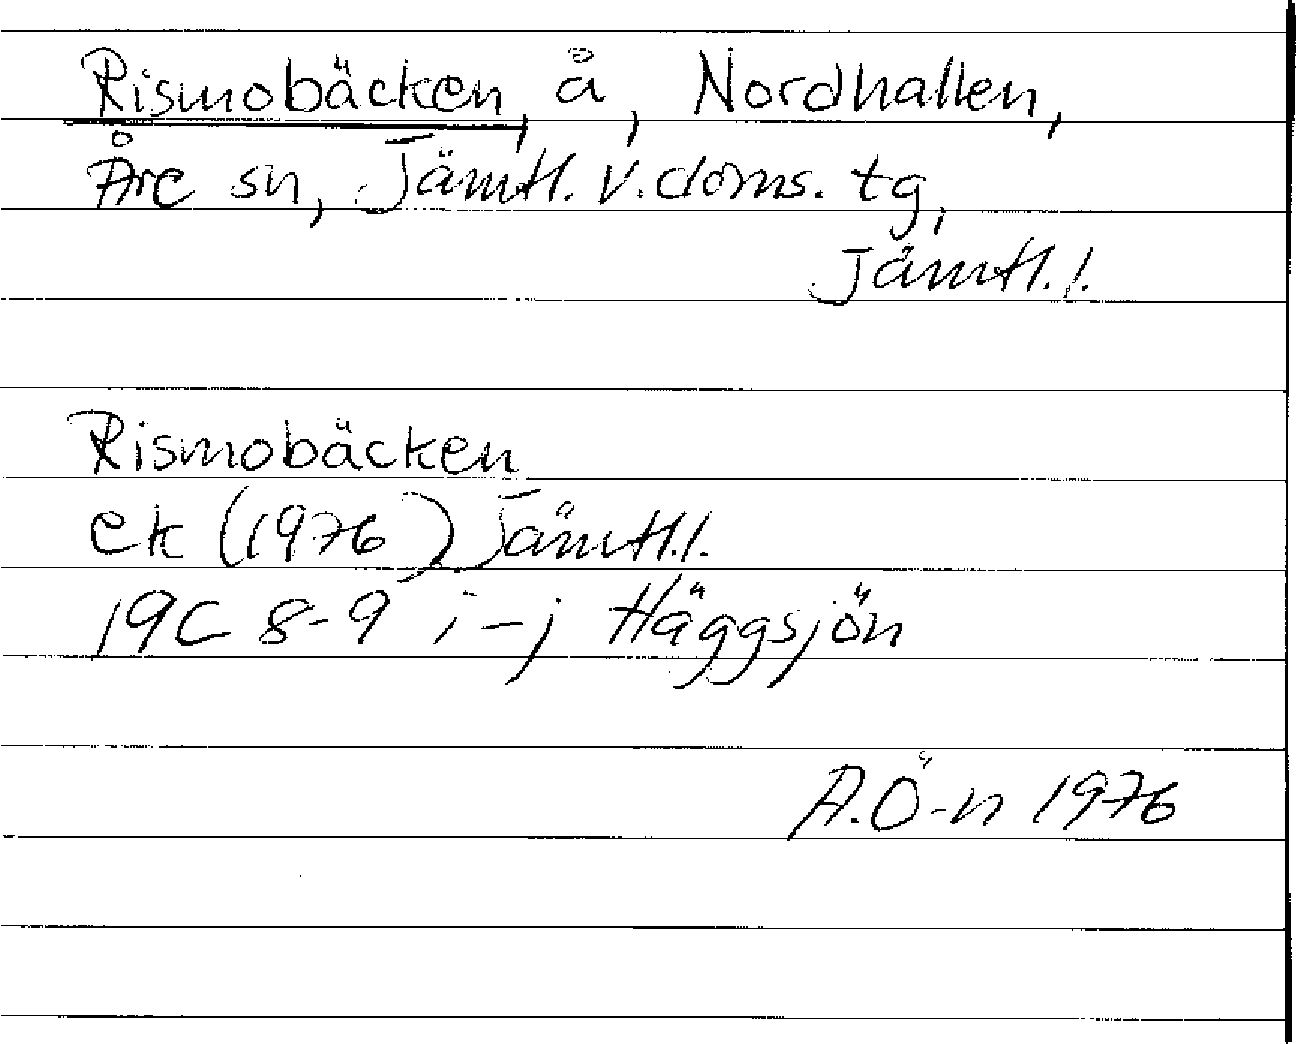 Rismobäcken, å, Nordhallen,
Åre sn, Jämtl. v. doms. tg,
Jämtl. l.
Rismobäcken
ek (1976) Jämtl. l.
19C 8-9 i-j Häggsjön
A.Ö-n 1976